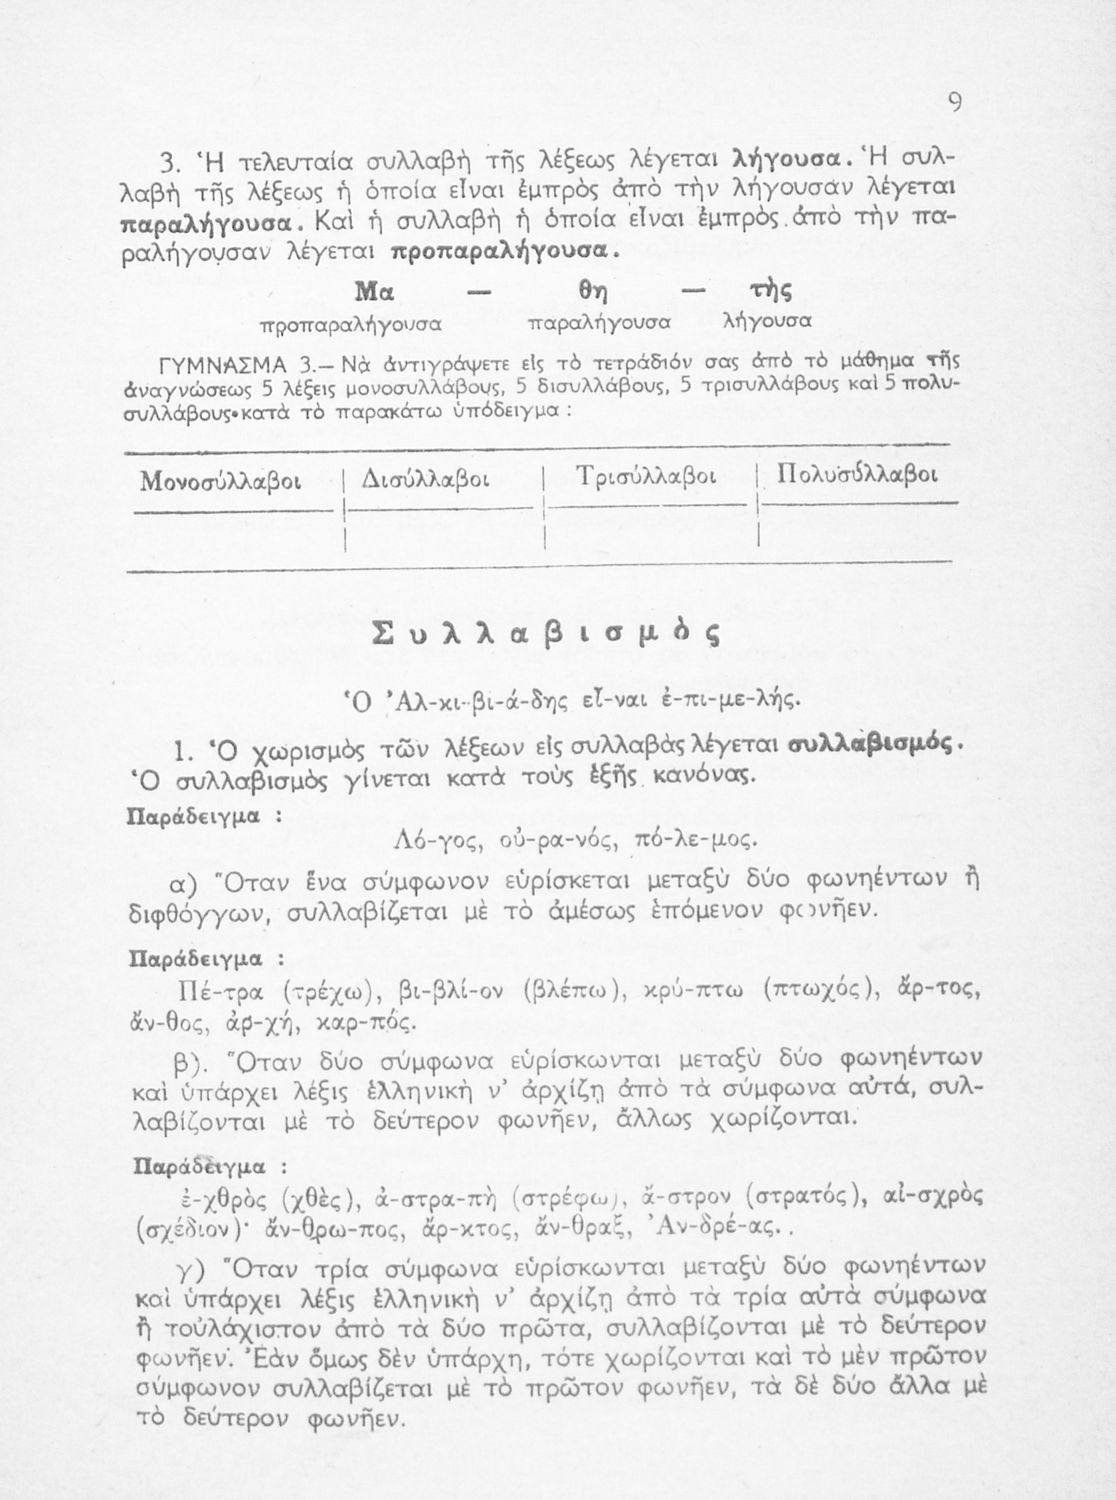 9
3. Ἡ τελευταία συλλαβὴ τῆς λέξεως λέγεται λήγουσα. Ἡ συλ-
λαβὴ τῆς λέξεως ἡ ὁποία εἶναι ἐμπρὸς ἀπὸ τὴν λήγουσαν λέγεται
παραλήγουσα. Καὶ ἡ συλλαβὴ ἡ ὁποία εἶναι ἐμπρὸς ἀπὸ τὴν πα-
ραλήγουσαν λέγεται προπαραλήγουσα.
Μα — θη — τὴς
προπαραλήγουσα παραλήγουσα λήγουσα
ΓΥΜΝΑΣΜΑ 3.— Νὰ ἀντιγράψετε εἰς τὸ τετράδιόν σας ἀπὸ τὸ μάθημα τῆς
ἀναγνώσεως 5 λέξεις μονοσυλλάβους, 5 δισυλλάβους, 5 τρισυλλάβους καὶ 5 πολυ-
συλλάβους κατὰ τὸ παρακάτω ὑπόδειγμα :
Μονοσύλλαβοι | Δισύλλαβοι | Τρισύλλαβοι | Πολυσύλλαβοι
Συλλαβισμὸς
Ὁ Ἀλ-κι-βι-ά-δης εἶ-ναι ἐ-πι-με-λής.
1. Ὁ χωρισμὸς τῶν λέξεων εἰς συλλαβὰς λέγεται συλλαβισμός.
Ὁ συλλαβισμὸς γίνεται κατὰ τοὺς ἑξῆς κανόνας.
Παράδειγμα :
Λό-γος, οὐ-ρα-νός, πό-λε-μος.
α) Ὅταν ἕνα σύμφωνον εὑρίσκεται μεταξὺ δύο φωνηέντων ἢ
διφθόγγων, συλλαβίζεται μὲ τὸ ἀμέσως ἑπόμενον φωνῆεν.
Παράδειγμα :
Πέ-τρα (τρέχω), βι-βλί-ον (βλέπω), κρύ-πτω (πτωχός), ἄρ-τος,
ἄν-θος, ἀρ-χή, καρ-πός.
β). Ὅταν δύο σύμφωνα εὑρίσκωνται μεταξὺ δύο φωνηέντων
καὶ ὑπάρχει λέξις ἑλληνικὴ ν' ἀρχίζῃ ἀπὸ τὰ σύμφωνα αὐτά, συλ-
λαβίζονται μὲ τὸ δεύτερον φωνῆεν, ἄλλως χωρίζονται.
Παράδειγμα :
ἐ-χθρὸς (χθὲς), ἀ-στρα-πὴ (στρέφω), ἄ-στρον (στρατός), αἰ-σχρὸς
(σχέδιον)· ἄν-θρω-πος, ἄρ-κτος, ἄν-θραξ, Ἀν-δρέ-ας..
γ) Ὅταν τρία σύμφωνα εὑρίσκωνται μεταξὺ δύο φωνηέντων
καὶ ὑπάρχει λέξις ἑλληνικὴ ν' ἀρχίζῃ ἀπὸ τὰ τρία αὐτὰ σύμφωνα
ἢ τοὐλάχιστον ἀπὸ τὰ δύο πρῶτα, συλλαβίζονται μὲ τὸ δεύτερον
φωνῆεν. Ἐὰν ὅμως δὲν ὑπάρχη, τότε χωρίζονται καὶ τὸ μὲν πρῶτον
σύμφωνον συλλαβίζεται μὲ τὸ πρῶτον φωνῆεν, τὰ δὲ δύο ἄλλα μὲ
τὸ δεύτερον φωνῆεν.